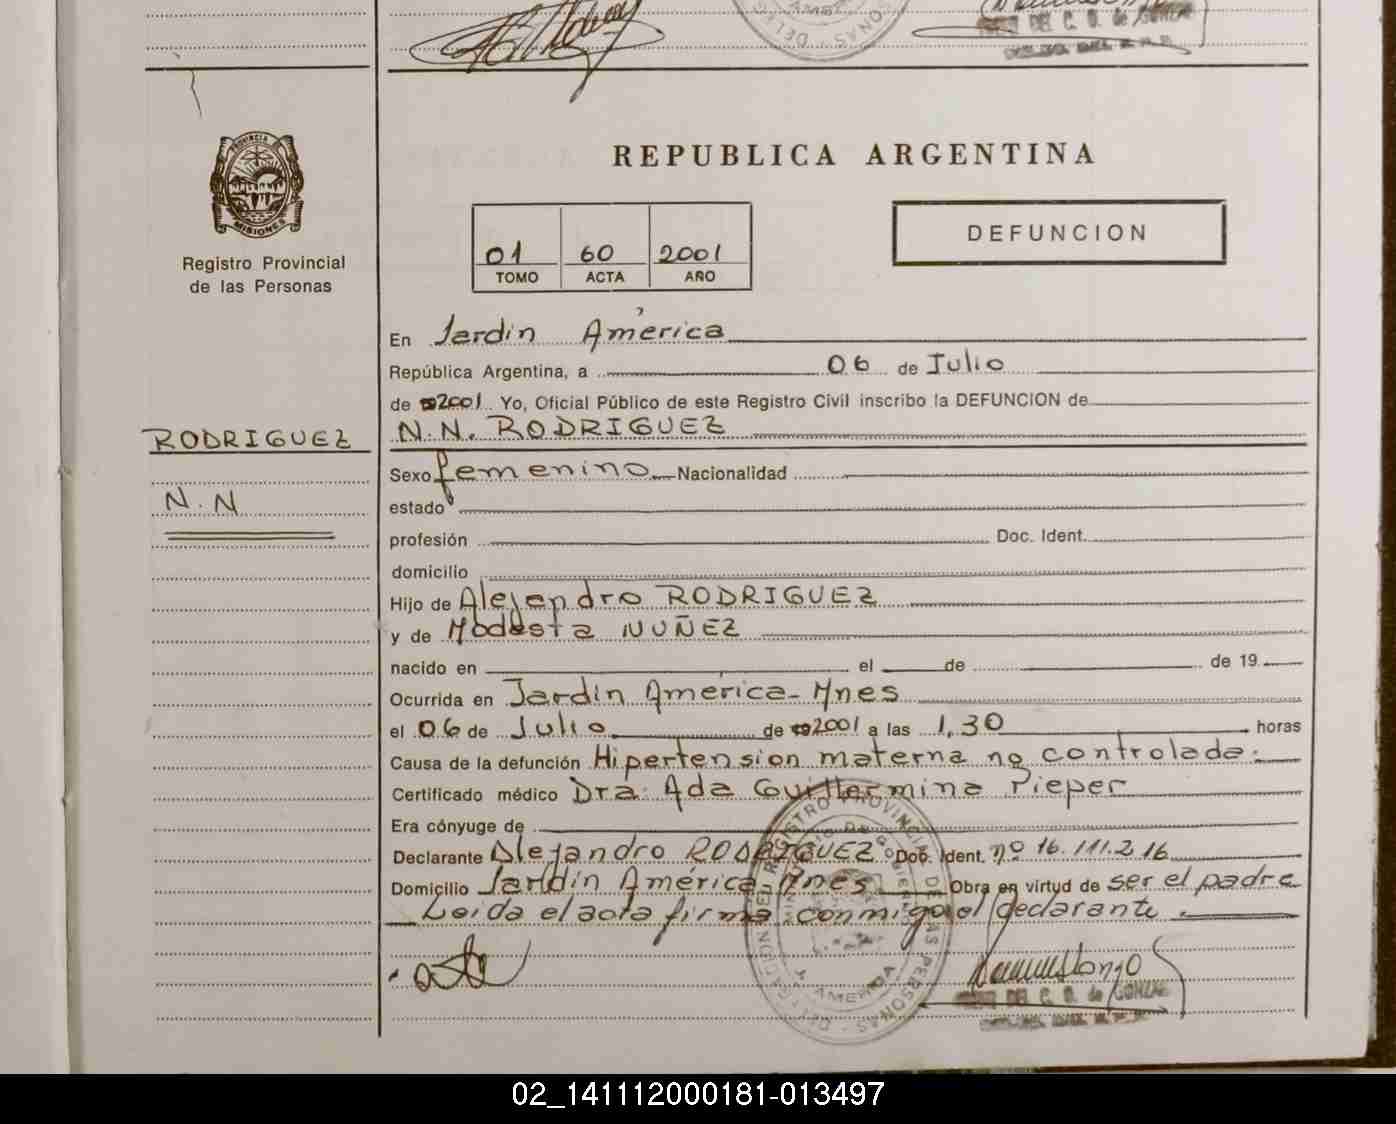 DEL C. D. de GONZAL
PROVINCIA DE
MISIONES
Registro Provincial
de las Personas
REPUBLICA ARGENTINA
01 60 2001
TOMO ACTA AÑO
DEFUNCION
En Jardin América
República Argentina, a 06 de Julio
de 2001 Yo, Oficial Público de este Registro Civil inscribo la DEFUNCION de
RODRIGUEZ
N.N. RODRIGUEZ
Sexo femenino Nacionalidad
N.N
estado
profesión Doc. Ident.
domicilio
Hijo de Alejandro RODRIGUEZ
y de Modesta NUÑEZ
nacido en el de de 19
Ocurrida en Jardin América-Mnes
el 06 de Julio de 2001 a las 1,30 horas
Causa de la defunción Hipertension materna no controlada.
Certificado médico Dra. Ada Guillermina Pieper
Era cónyuge de
Declarante Alejandro RODRIGUEZ Doc. Ident. nº 16.111.216
Domicilio Jardín América, Mnes Obra en virtud de ser el padre
Leida el acta firma conmigo el declarante.
DEL REGISTRO PROVINCIAL DE LAS PERSONAS
MINISTERIO DE GOBIERNO
J. AMERICA
DEL C. D. de GONZAL
02_141112000181-013497